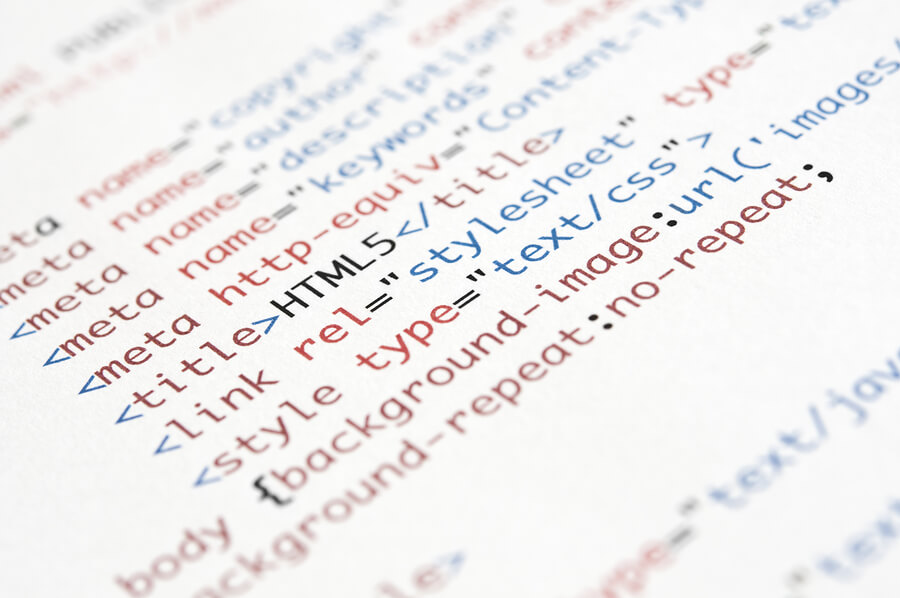 meta name="copyright"
<meta name="author"
<meta name="description"
<meta name="keywords"
<meta http-equiv="Content-Typ
<title>HTML5</title>
<link rel="stylesheet" type="tex
<style type="text/css">
body {background-image:url('images/
background-repeat:no-repeat;
type="text/jav
"text